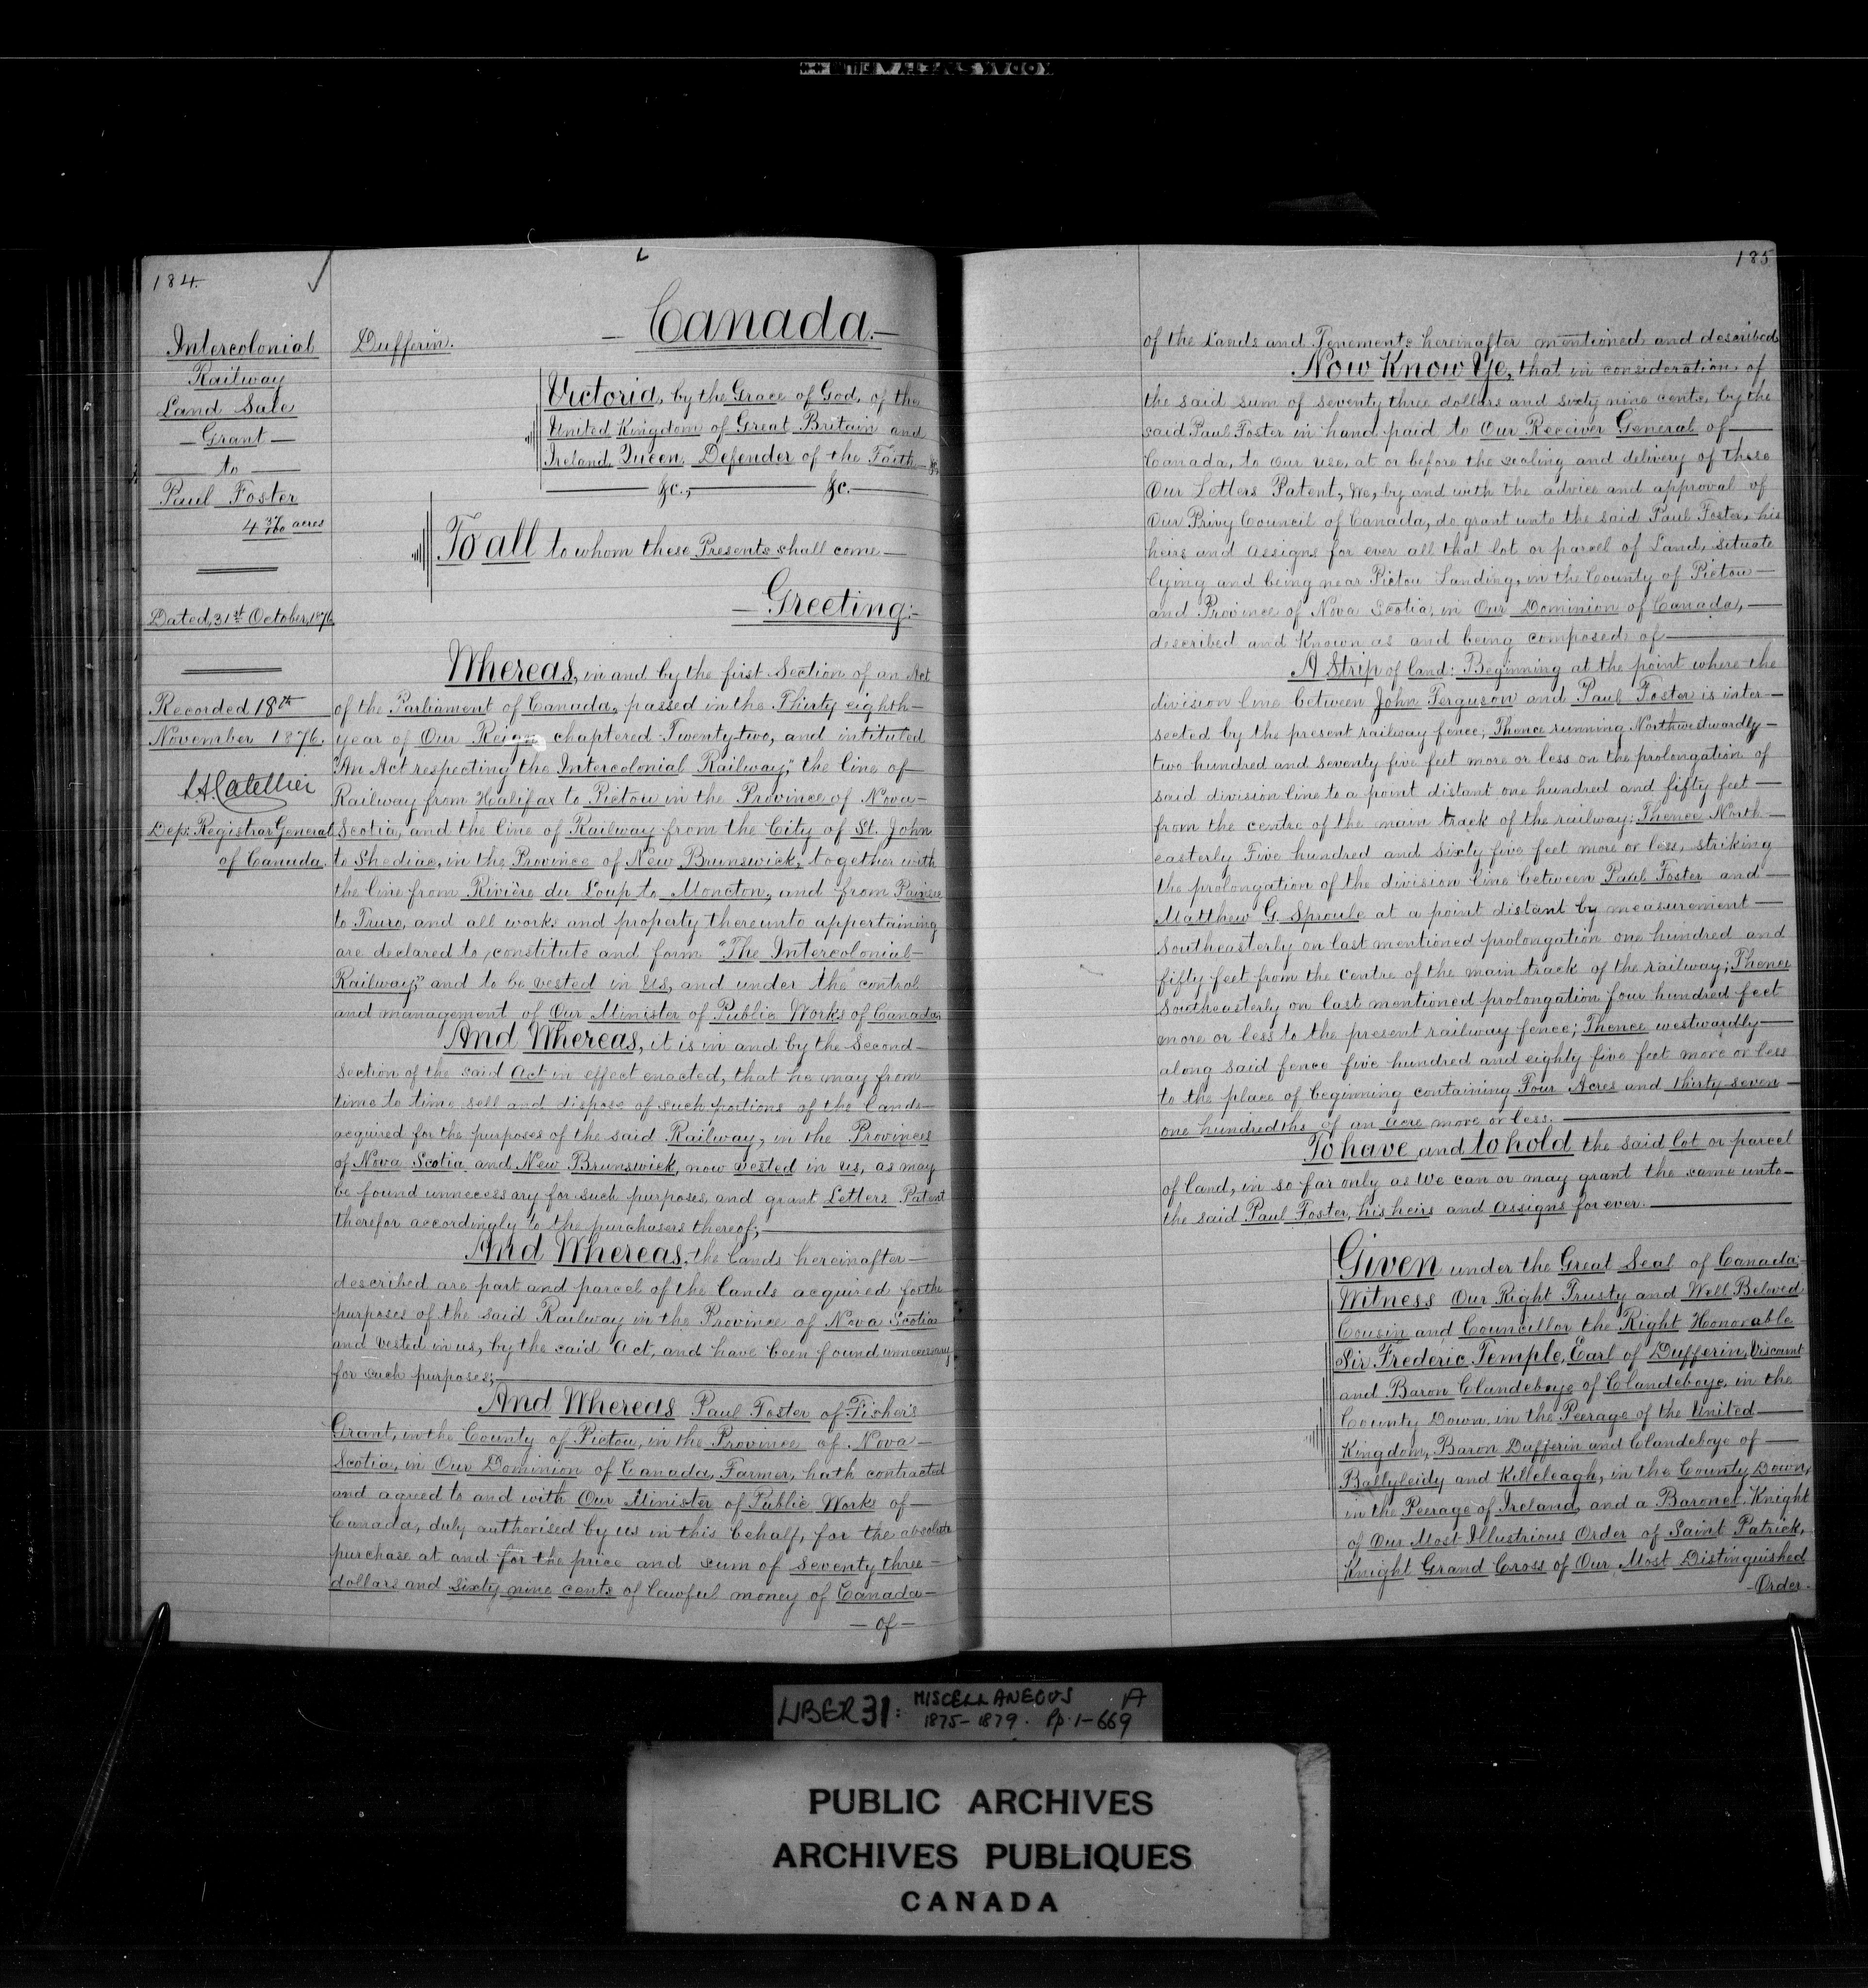 184.
Intercolonial
Railway
Land Sale
— Grant —
— to —
Paul Foster
4 37/100 acres
Dated, 31st October, 1876.
Recorded 18th
November 1876.
L. A. Catellier
Dep: Registrar General
of Canada.
Dufferin.
— Canada. —
Victoria, by the Grace of God, of the
United Kingdom of Great Britain and
Ireland, Queen, Defender of the Faith — &c.
— &c., — &c. —
To all to whom these Presents shall come —
— Greeting: —
Whereas, in and by the first Section of an Act
of the Parliament of Canada, passed in the Thirty eighth —
year of Our Reign chaptered Twenty-two, and intituled
"An Act respecting the Intercolonial Railway," the line of —
Railway from Halifax to Pictou in the Province of Nova —
Scotia, and the line of Railway from the City of St. John
to Shediac, in the Province of New Brunswick, together with
the line from Rivière du Loup to Moncton, and from Painsec
to Truro, and all works and property thereunto appertaining
are declared to constitute and form "The Intercolonial —
Railway," and to be vested in us, and under the control
and management of Our Minister of Public Works of Canada;
And Whereas, it is in and by the Second —
Section of the said Act in effect enacted, that he may from
time to time sell and dispose of such portions of the lands —
acquired for the purposes of the said Railway, in the Provinces
of Nova Scotia and New Brunswick, now vested in us, as may
be found unnecessary for such purposes, and grant Letters Patent
therefor accordingly to the purchasers thereof; —
And Whereas, the lands hereinafter —
described are part and parcel of the lands acquired for the
purposes of the said Railway in the Province of Nova Scotia
and vested in us, by the said Act, and have been found unnecessary
for such purposes; —
And Whereas Paul Foster of Fisher's
Grant, in the County of Pictou, in the Province of Nova —
Scotia, in Our Dominion of Canada, Farmer, hath contracted
and agreed to and with Our Minister of Public Works of —
Canada, duly authorised by us in this behalf, for the absolute
purchase at and for the price and sum of seventy three —
dollars and sixty nine cents of lawful money of Canada —
— of —
185
of the Lands and Tenements hereinafter mentioned and described
Now Know Ye, that in consideration of
the said sum of seventy three dollars and sixty nine cents, by the
said Paul Foster in hand paid to Our Receiver General of —
Canada, to Our use, at or before the sealing and delivery of these
Our Letters Patent, We, by and with the advice and approval of
Our Privy Council of Canada, do grant unto the said Paul Foster, his
heirs and assigns for ever all that lot or parcel of Land, situate
lying and being near Pictou Landing, in the County of Pictou —
and Province of Nova Scotia, in Our Dominion of Canada, —
described and Known as and being composed of —
A Strip of land: Beginning at the point where the
division line between John Ferguson and Paul Foster is inter —
sected by the present railway fence; Thence running Northwestwardly —
two hundred and seventy five feet more or less on the prolongation of
said division line to a point distant one hundred and fifty feet —
from the centre of the main track of the railway; Thence North —
easterly Five hundred and Sixty five feet more or less, striking
the prolongation of the division line between Paul Foster and —
Matthew G. Sproule at a point distant by measurement —
Southeasterly on last mentioned prolongation one hundred and
fifty feet from the centre of the main track of the railway; Thence
Southeasterly on last mentioned prolongation four hundred feet
more or less to the present railway fence; Thence westwardly —
along said fence five hundred and eighty five feet more or less
to the place of beginning containing Four Acres and thirty-seven —
one hundredths of an acre more or less. —
To have and to hold the said lot or parcel
of land, in so far only as We can or may grant the same unto —
the said Paul Foster, his heirs and assigns for ever. —
Given under the Great Seal of Canada:
Witness Our Right Trusty and Well Beloved
Cousin and Councillor the Right Honorable
Sir Frederic Temple, Earl of Dufferin, Viscount
and Baron Clandeboye of Clandeboye, in the
County Down, in the Peerage of the United —
Kingdom, Baron Dufferin and Clandeboye of —
Ballyleidy and Killeleagh, in the County Down,
in the Peerage of Ireland, and a Baronet, Knight
of Our Most Illustrious Order of Saint Patrick,
Knight Grand Cross of Our Most Distinguished
— Order —
LIBER 31: MISCELLANEOUS A
1875-1879. Pp. 1-669
PUBLIC ARCHIVES
ARCHIVES PUBLIQUES
CANADA